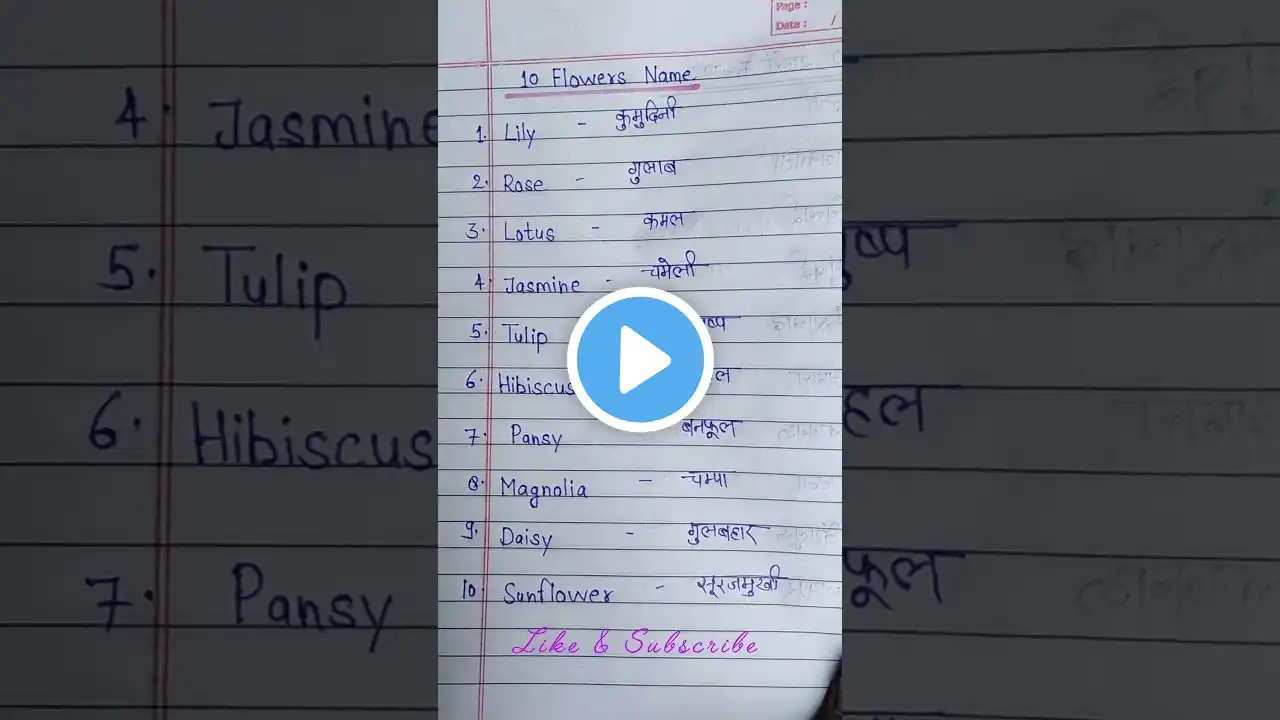 Page :
Date : /
10 Flowers Name
1. Lily - कुमुदिनी
2. Rose - गुलाब
3. Lotus - कमल
4. Jasmine - चमेली
5. Tulip ष्प
6. Hibiscus ल
7. Pansy बनफूल
8. Magnolia - चम्पा
9. Daisy - गुलबहार
10. Sunflower - सूरजमुखी
Like & Subscribe
4. Jasmine
5. Tulip ुष्प
6. Hibiscus हल
7. Pansy फूल